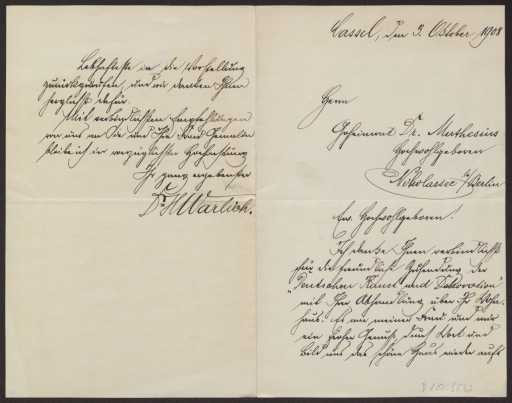 Cassel, den 3. Oktober 1908
Herrn
Geheimrat Dr. Muthesius
Hochwohlgeboren
Nikolassee b/Berlin
Ew. Hochwohlgeboren!
Ich danke Ihnen verbindlichst
für die freundliche Zusendung der
"Deutschen Kunst und Dekoration"
mit Ihrer Abhandlung über Ihr Wohn-
haus. Es war meiner Frau und mir
ein hoher Genuß, durch Wort und
Bild uns das schöne Haus wieder aufs
Lebhafteste in die Vorstellung
zurückzurufen, und wir danken Ihnen
herzlichst dafür.
Mit verbindlichsten Empfehlungen
von uns an Sie und Ihre Frau Gemahlin
bleibe ich in vorzüglichster Hochachtung
Ihr ganz ergebenster
Dr. H Warlich.